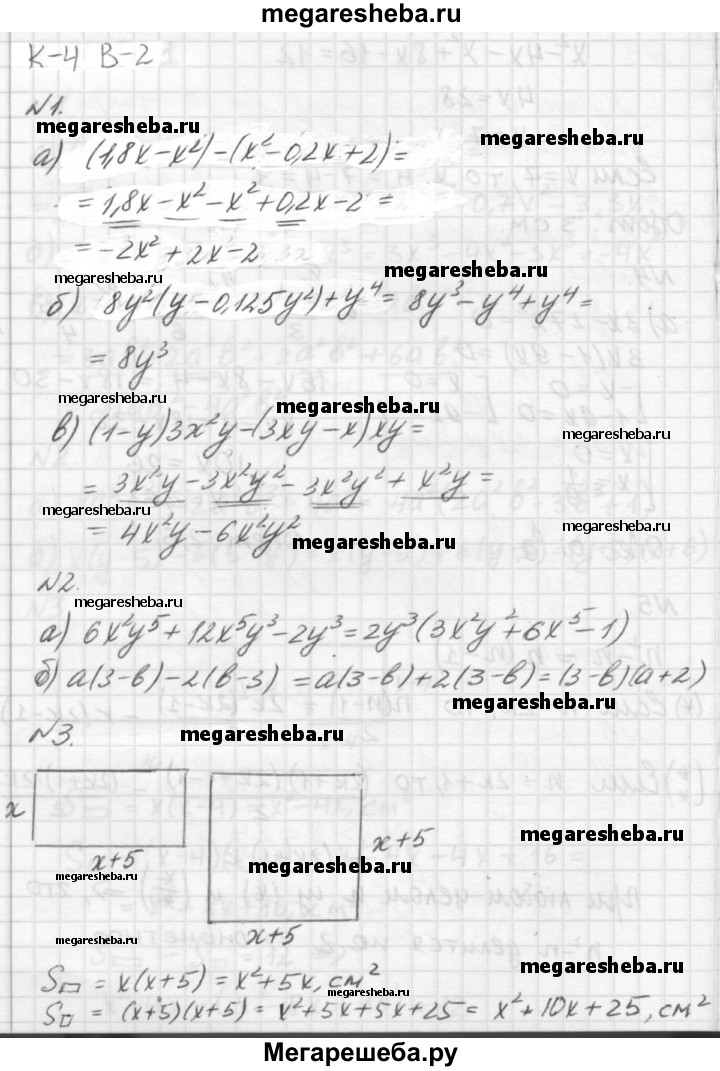 megaresheba.ru
К-4 В-2
№1.
megaresheba.ru
megaresheba.ru
а) (1,8x-x²)-(x²-0,2x+2)=
=1,8x-x²-x²+0,2x-2=
=-2x²+2x-2
megaresheba.ru
megaresheba.ru
б) 8y²(y-0,125y²)+y⁴=8y³-y⁴+y⁴=
=8y³
megaresheba.ru
в) (1-y)3x²y-(3xy-x)xy=
megaresheba.ru
=3x²y-3x²y²-3x²y²+x²y=
megaresheba.ru
=4x²y-6x²y²
megaresheba.ru
megaresheba.ru
№2.
megaresheba.ru
а) 6x²y⁵+12x⁵y³-2y³=2y³(3x²y²+6x⁵-1)
б) a(3-в)-2(в-3)=a(3-в)+2(3-в)=(3-в)(a+2)
megaresheba.ru
№3.
megaresheba.ru
x
x+5
megaresheba.ru
x+5
megaresheba.ru
megaresheba.ru
x+5
megaresheba.ru
S▭=x(x+5)=x²+5x, см²
megaresheba.ru
S□=(x+5)(x+5)=x²+5x+5x+25=x²+10x+25, см²
Мегарешеба.ру